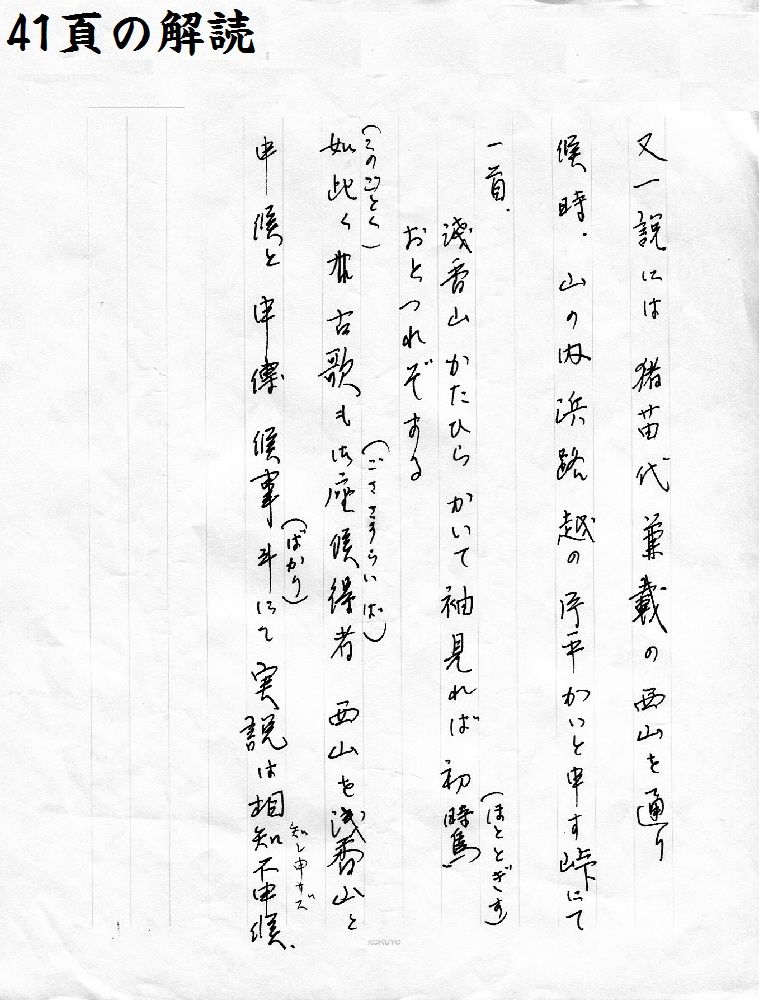 41頁の解読
又一説には猪苗代兼載の西山を通り
候時．山の内浜路越の序平かいと申す峠にて
一首．
浅香山かたひらかいて袖見れば初時鳥
(ほととぎす)
おとつれぞする
(このごとく)
如此く古歌も御座候得者 西山を浅香山と
(ござそうらいば)
申候と申傳候事斗にて実説は相知不申候、
(ばかり)
知レ申サズ
KOKUYO